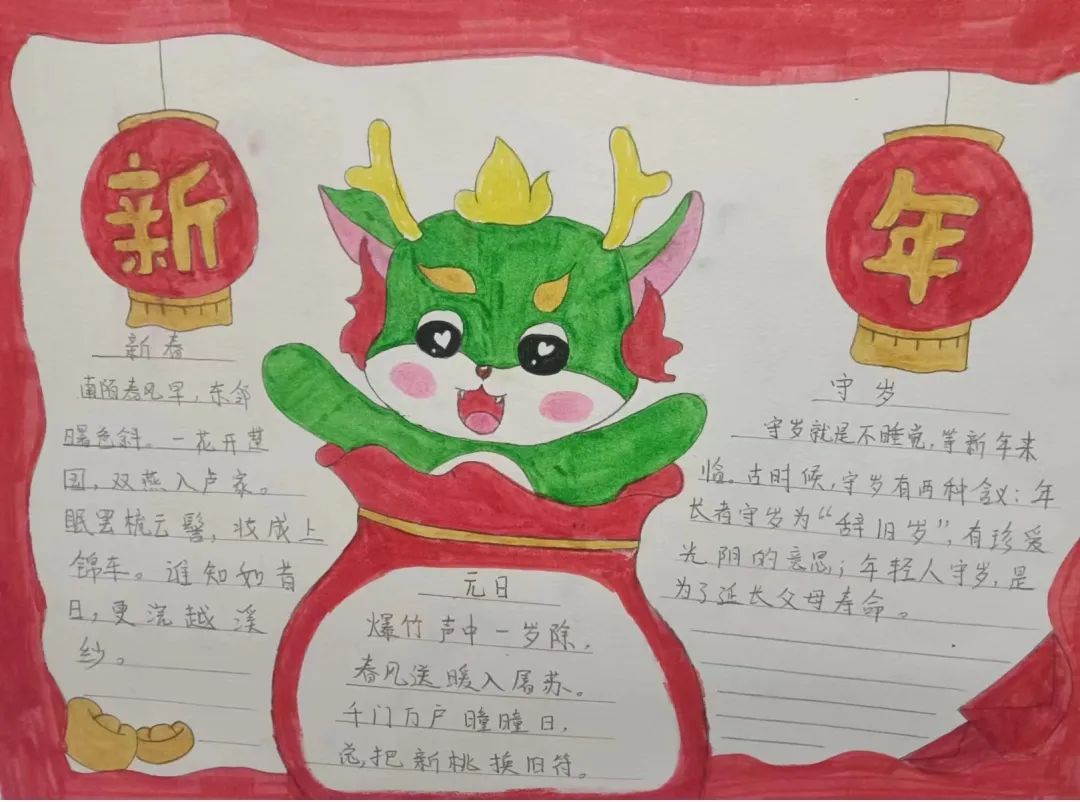 新
年
新春
南陌春风早，东邻
曙色斜。一花开楚
国，双燕入卢家。
眠罢梳云髻，妆成上
锦车。谁知如昔
日，更浣越溪
纱。
元日
爆竹声中一岁除，
春风送暖入屠苏。
千门万户瞳瞳日，
总把新桃换旧符。
守岁
守岁就是不睡觉，等新年来
临。古时候，守岁有两种含义：年
长者守岁为“辞旧岁”，有珍爱
光阴的意思；年轻人守岁，是
为了延长父母寿命。